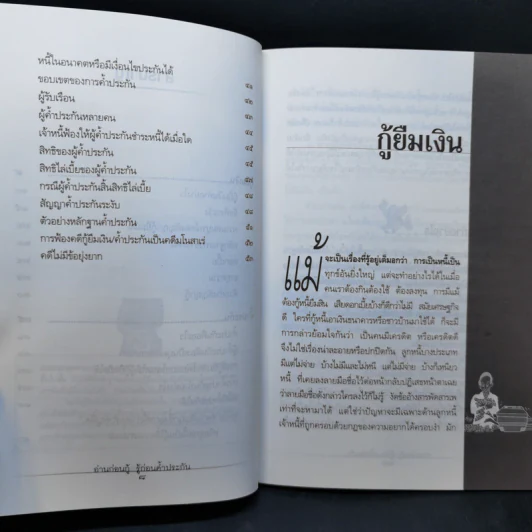 หนี้ในอนาคตหรือมีเงื่อนไขประกันได้
ขอบเขตของการค้ำประกัน ๔๑
ผู้รับเรือน ๔๒
ผู้ค้ำประกันหลายคน ๔๓
เจ้าหนี้ฟ้องให้ผู้ค้ำประกันชำระหนี้ได้เมื่อใด ๔๔
สิทธิของผู้ค้ำประกัน ๔๕
สิทธิไล่เบี้ยของผู้ค้ำประกัน ๔๕
กรณีผู้ค้ำประกันสิ้นสิทธิไล่เบี้ย ๔๗
สัญญาค้ำประกันระงับ ๔๘
ตัวอย่างหลักฐานค้ำประกัน
การฟ้องคดีกู้ยืมเงิน/ค้ำประกันเป็นคดีมโนสาเร่
คดีไม่มีข้อยุ่งยาก
อ่านก่อนกู้ รู้ก่อนค้ำประกัน
กู้ยืมเงิน
แม้จะเป็นเรื่องที่รู้อยู่เต็มอกว่า การเป็นหนี้เป็น
ทุกข์อันยิ่งใหญ่ แต่จะทำอย่างไรได้ในเมื่อ
คนเราต้องกินต้องใช้ ต้องลงทุน การมีแม้
ต้องกู้หนี้ยืมสิน เสียดอกเบี้ยบ้างก็ดีกว่าไม่มี สมัยเศรษฐกิจ
ดี ใครที่กู้หนี้เอาเงินธนาคารหรือชาวบ้านมาใช้ได้ ก็จะมี
การกล่าวย้อมใจกันว่า เป็นคนมีเครดิต หรือเครดิตดี
จึงไม่ใช่เรื่องน่าละอายหรือปกปิดกัน ลูกหนี้บางประเภท
มีแต่ไม่จ่าย บ้างไม่มีและไม่หนี แต่ไม่มีจ่าย บ้างก็เหนียว
หนี้ ที่เคยลงลายมือชื่อไว้ต่อหน้ากลับปฏิเสธหน้าตาเฉย
ว่าลายมือชื่อดังกล่าวใครลงไว้ก็ไม่รู้ งัดข้ออ้างสารพัดสารเพ
เท่าที่จะหามาได้ แต่ใช่ว่าปัญหาจะมีเฉพาะด้านลูกหนี้
เจ้าหนี้ที่ถูกครอบด้วยกฎของความอยากได้ครอบงำ มัก